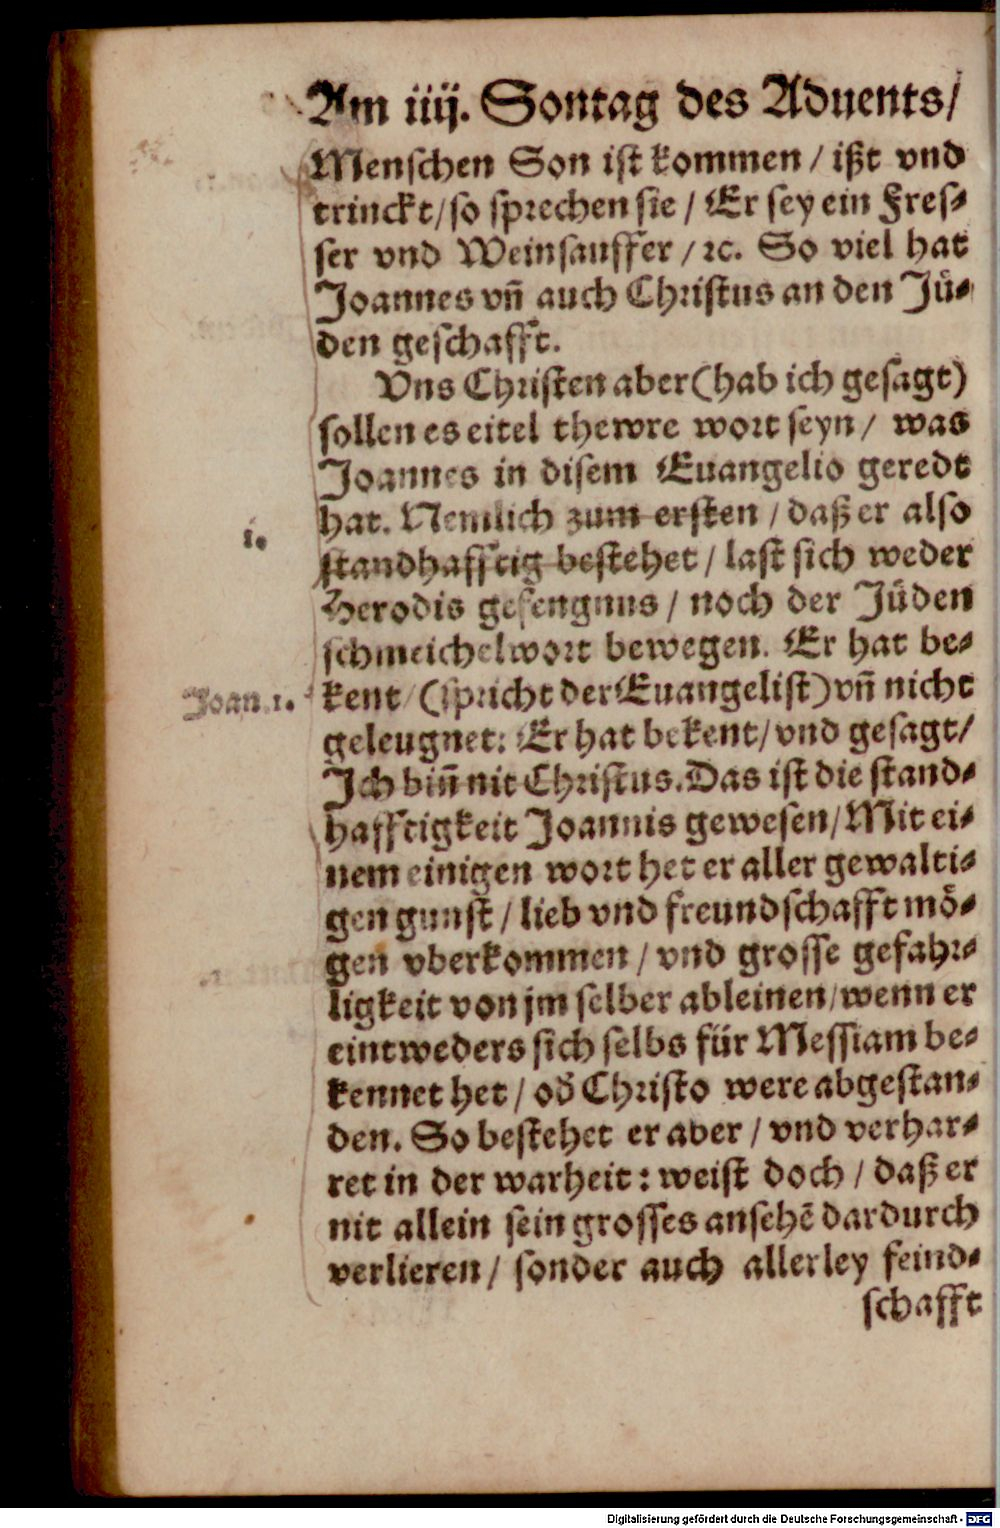 Am iiij. Sontag des Aduents/
Menschen Son ist kommen / ißt vnd
trinckt/so sprechen sie / Er sey ein Fres-
ser vnd Weinsauffer / ꝛc. So viel hat
Joannes vñ auch Christus an den Jü-
den geschafft.
Vns Christen aber (hab ich gesagt)
sollen es eitel thewre wort seyn / was
Joannes in disem Euangelio geredt
hat. Nemlich zum ersten / daß er also
1.
standhafftig bestehet / last sich weder
Herodis gefengnus / noch der Jüden
schmeichelwort bewegen. Er hat be-
Joan.1.
kent/ (spricht der Euangelist) vñ nicht
geleugnet: Er hat bekent/ vnd gesagt/
Jch biñ nit Christus. Das ist die stand-
hafftigkeit Joannis gewesen/ Mit ei-
nem einigen wort het er aller gewalti-
gen gunst / lieb vnd freundschafft mö-
gen vberkommen / vnd grosse gefahr-
ligkeit von jm selber ableinen/ wenn er
eintweders sich selbs für Messiam be-
kennet het / oď Christo were abgestan-
den. So bestehet er aber / vnd verhar-
ret in der warheit: weist doch / daß er
nit allein sein grosses ansehẽ dardurch
verlieren / sonder auch allerley feind-
schafft
Digitalisierung gefördert durch die Deutsche Forschungsgemeinschaft - DFG